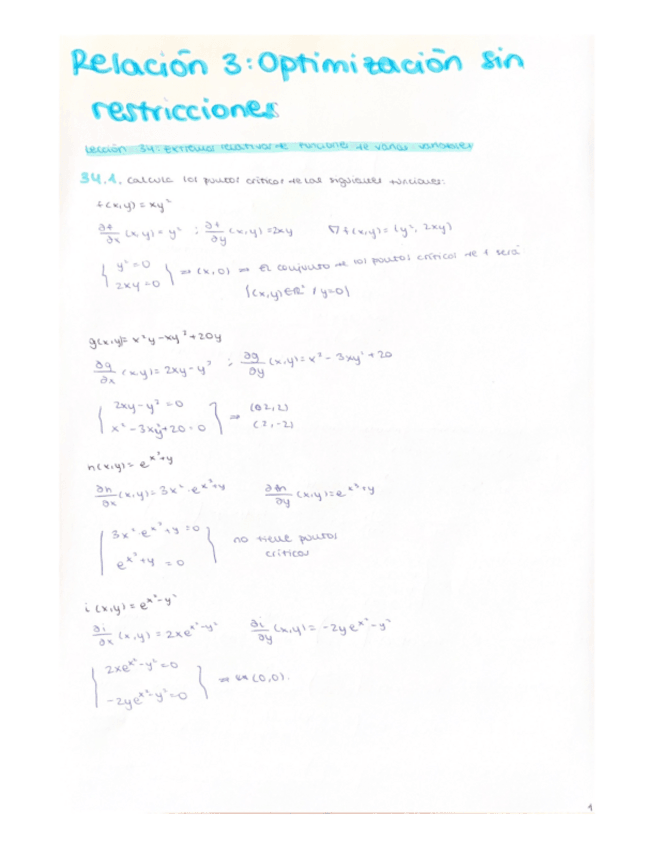 Relación 3: Optimización sin
restricciones
Lección 34: Extremos relativos de funciones de varias variables
34.1. Calcula los puntos críticos de las siguientes funciones:
f(x,y) = xy²
∂f/∂x (x,y) = y² ; ∂f/∂y (x,y) = 2xy ∇f(x,y) = (y², 2xy)
{ y² = 0
2xy = 0 } ⇒ (x,0) ⇒ El conjunto de los puntos críticos de f será
{(x,y) ∈ ℝ² / y=0}
g(x,y) = x²y - xy³ + 20y
∂g/∂x (x,y) = 2xy - y³ ; ∂g/∂y (x,y) = x² - 3xy² + 20
{ 2xy - y³ = 0
x² - 3xy² + 20 = 0 } ⇒ (2,2)
(2,-2)
h(x,y) = e^x³+y
∂h/∂x (x,y) = 3x² · e^x³+y ∂h/∂y (x,y) = e^x³+y
{ 3x² · e^x³+y = 0
e^x³+y = 0 } no tiene puntos
críticos
i(x,y) = e^x²-y²
∂i/∂x (x,y) = 2xe^x²-y² ∂i/∂y (x,y) = -2ye^x²-y²
{ 2xe^x²-y² = 0
-2ye^x²-y² = 0 } ⇒ (0,0).
1